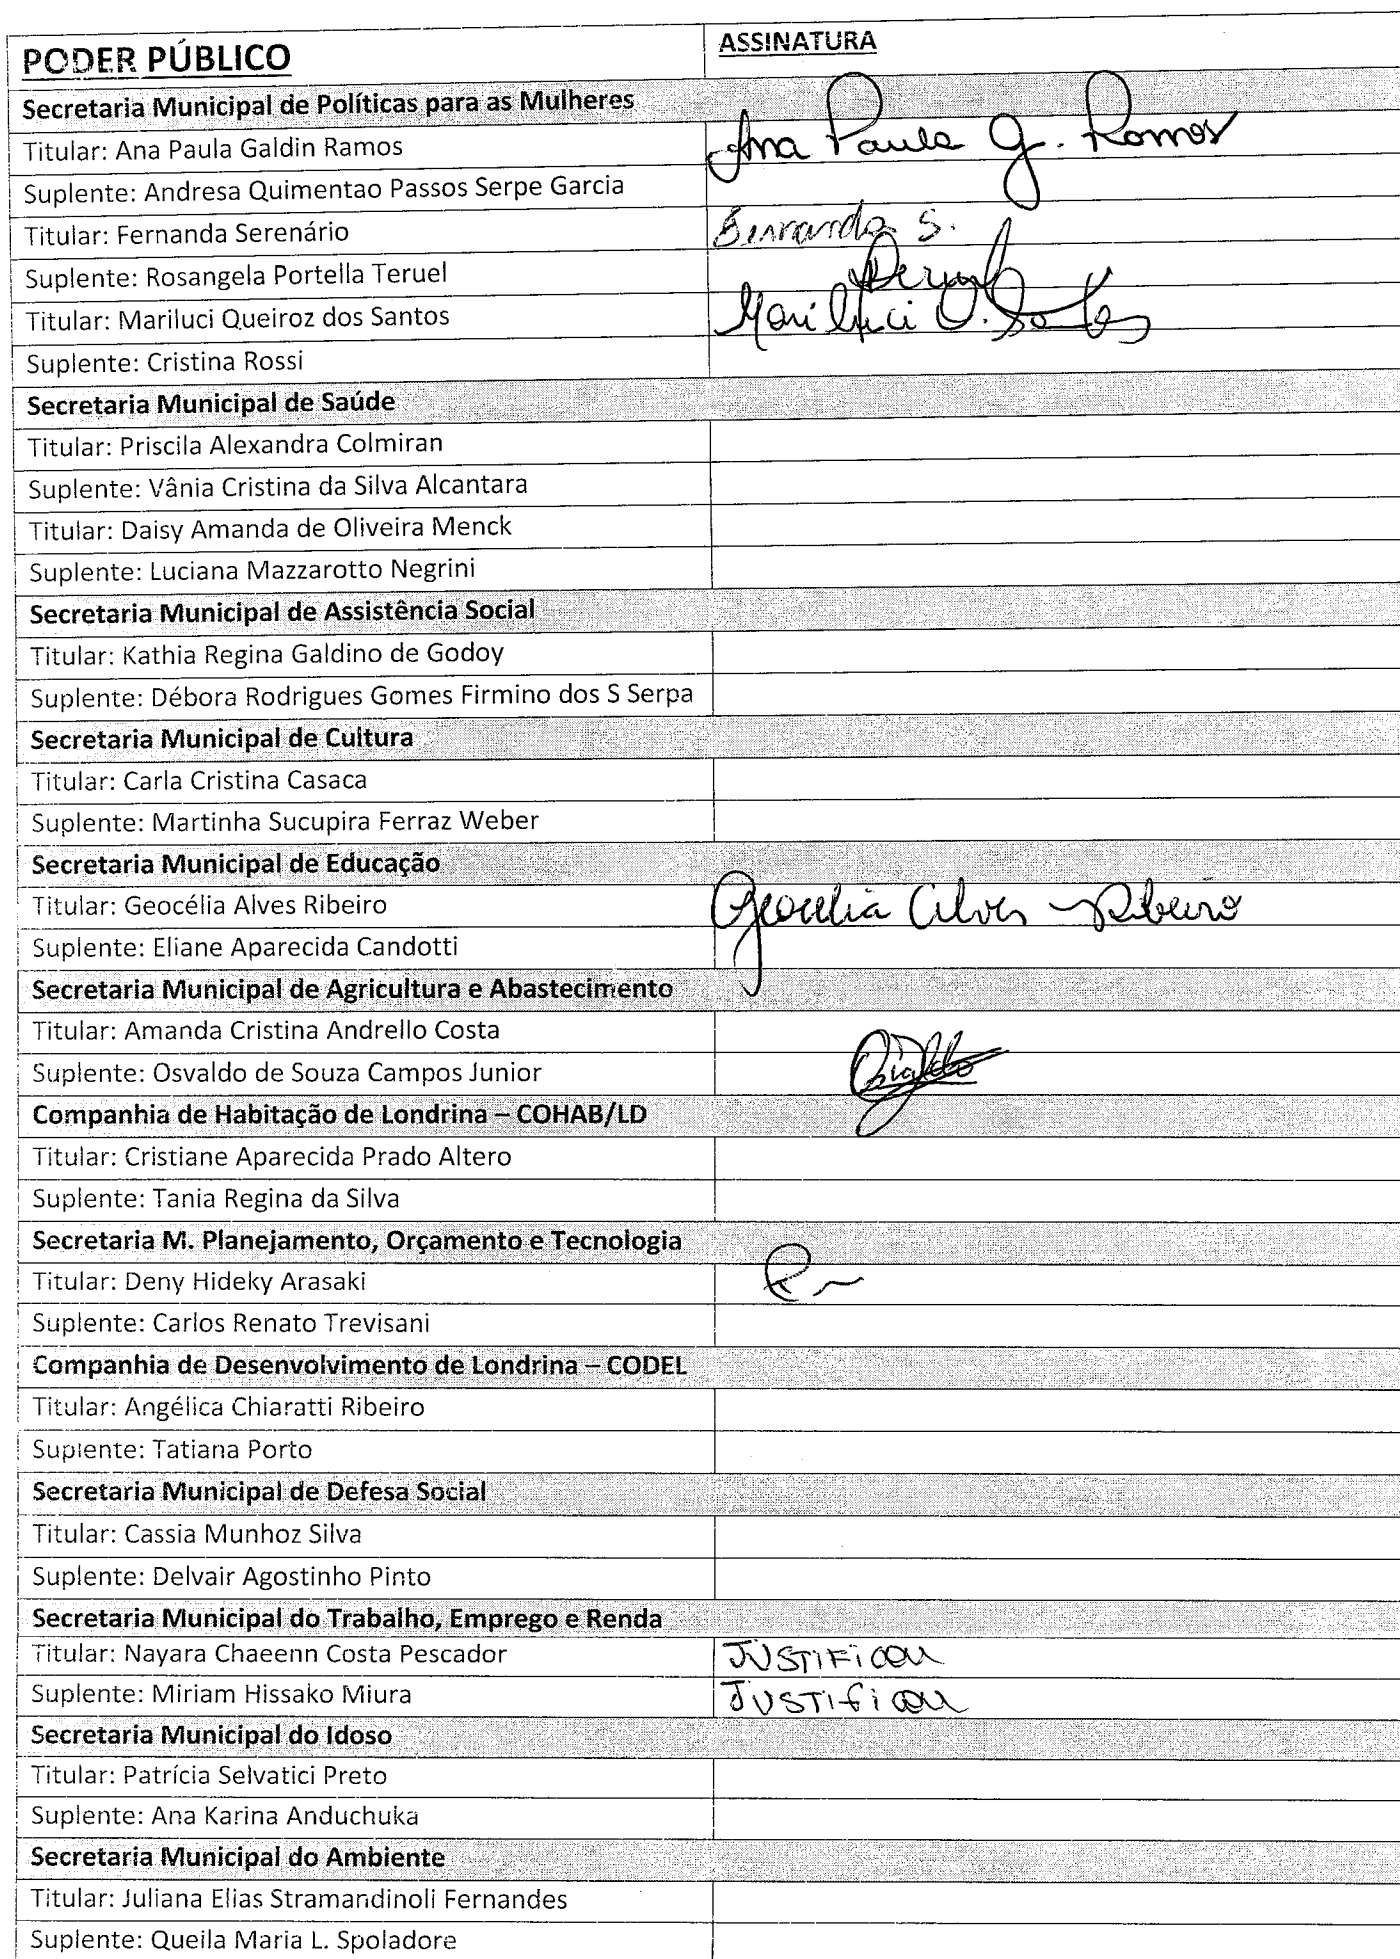 PODER PÚBLICO ASSINATURA
Secretaria Municipal de Políticas para as Mulheres
Titular: Ana Paula Galdin Ramos Ana Paula G. Ramos
Suplente: Andresa Quimentao Passos Serpe Garcia
Titular: Fernanda Serenário Fernanda S.
Suplente: Rosangela Portella Teruel
Titular: Mariluci Queiroz dos Santos Mariluci Q. Santos
Suplente: Cristina Rossi
Secretaria Municipal de Saúde
Titular: Priscila Alexandra Colmiran
Suplente: Vânia Cristina da Silva Alcantara
Titular: Daisy Amanda de Oliveira Menck
Suplente: Luciana Mazzarotto Negrini
Secretaria Municipal de Assistência Social
Titular: Kathia Regina Galdino de Godoy
Suplente: Débora Rodrigues Gomes Firmino dos S Serpa
Secretaria Municipal de Cultura
Titular: Carla Cristina Casaca
Suplente: Martinha Sucupira Ferraz Weber
Secretaria Municipal de Educação
Titular: Geocélia Alves Ribeiro Geocelia Alves Ribeiro
Suplente: Eliane Aparecida Candotti
Secretaria Municipal de Agricultura e Abastecimento
Titular: Amanda Cristina Andrello Costa
Suplente: Osvaldo de Souza Campos Junior Osvaldo
Companhia de Habitação de Londrina – COHAB/LD
Titular: Cristiane Aparecida Prado Altero
Suplente: Tania Regina da Silva
Secretaria M. Planejamento, Orçamento e Tecnologia
Titular: Deny Hideky Arasaki
Suplente: Carlos Renato Trevisani
Companhia de Desenvolvimento de Londrina – CODEL
Titular: Angélica Chiaratti Ribeiro
Suplente: Tatiana Porto
Secretaria Municipal de Defesa Social
Titular: Cassia Munhoz Silva
Suplente: Delvair Agostinho Pinto
Secretaria Municipal do Trabalho, Emprego e Renda
Titular: Nayara Chaeenn Costa Pescador JUSTIFICOU
Suplente: Miriam Hissako Miura JUSTIFICOU
Secretaria Municipal do Idoso
Titular: Patrícia Selvatici Preto
Suplente: Ana Karina Anduchuka
Secretaria Municipal do Ambiente
Titular: Juliana Elias Stramandinoli Fernandes
Suplente: Queila Maria L. Spoladore